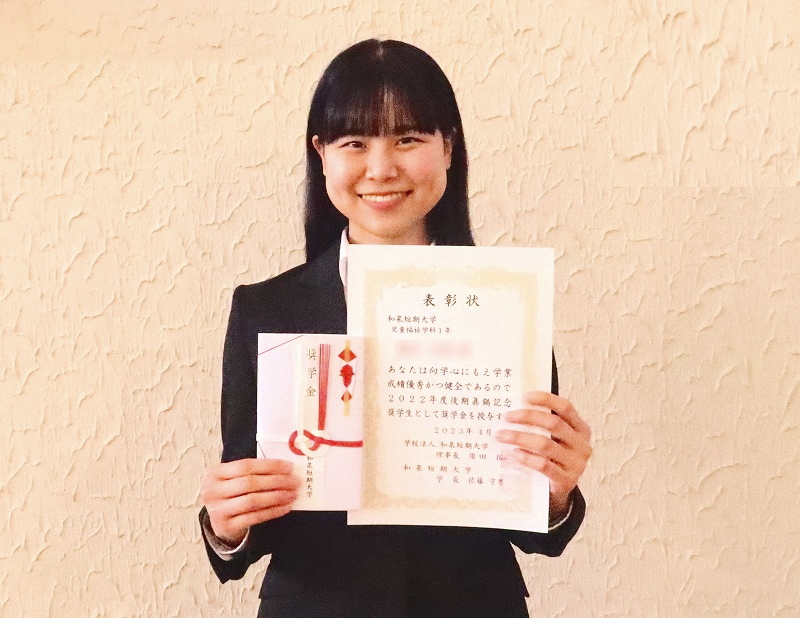 表彰状
和泉短期大学
児童福祉学科1年
あなたは向学心にもえ学業
成績優秀かつ健全であるので
2022年度後期眞鍋記念
奨学生として奨学金を授与す
2023年4月
学校法人 和泉短期大学
理事長
和泉短期大学
学長 佐藤 守男
奨学金
和泉短期大学